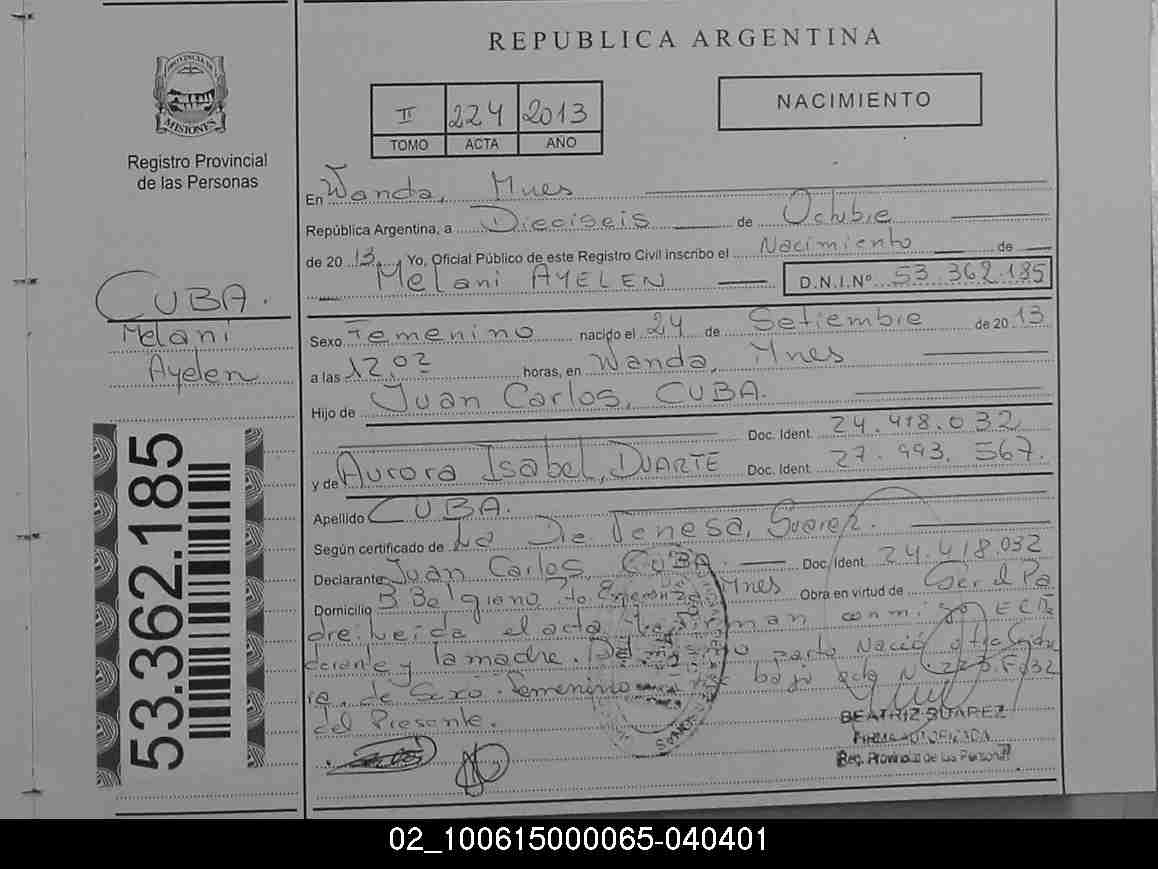 REPUBLICA ARGENTINA
PROVINCIA DE
MISIONES
Registro Provincial
de las Personas
II 224 2013
TOMO ACTA AÑO
NACIMIENTO
En Wanda, Mnes
República Argentina, a Dieciseis de Octubre
de 2013, Yo, Oficial Público de este Registro Civil inscribo el Nacimiento de
Melani AYELEN D.N.I.Nº 53.362.185
CUBA.
Melani
Ayelen
Sexo Femenino nacido el 24 de Setiembre de 2013
a las 12,02 horas, en Wanda, Mnes
Hijo de Juan Carlos, CUBA.
Doc. Ident. 24.418.032
y de Aurora Isabel, DUARTE Doc. Ident. 27.993.567.
Apellido CUBA.
Según certificado de La Dra. Suarez.
Declarante Juan Carlos, CUBA. Doc. Ident. 24.418.032
Domicilio B Belgrano Mnes Obra en virtud de Ser el Pa
dre: Leida el acta la firman conmigo el De
clarante y la madre. Del mismo parto Nació otra
de Sexo Femenino bajo acta N
del Presente.
BEATRIZ SUAREZ
FIRMA AUTORIZADA
Reg. Provincial de las Personas
53.362.185
02_100615000065-040401